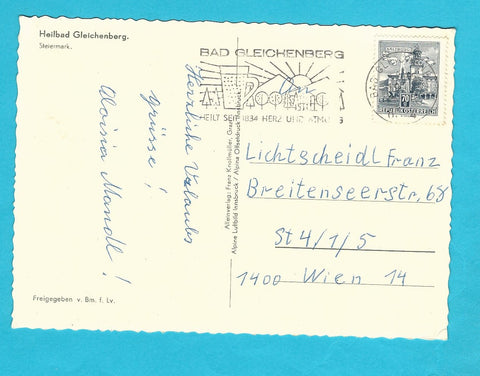 Heilbad Gleichenberg.
Steiermark.
BAD GLEICHENBERG
HEILT SEIT 1834 HERZ UND ATMUNG
REPUBLIK ÖSTERREICH
Herzliche Urlaubs
grüsse!
Aloisia Mandl!
Alleinverlag: Franz Knollmüller, Graz
Alpine Luftbild Innsbruck / Alpine Offenbruck
An
Lichtscheidl Franz
Breitenseerstr, 68
St 4/1/5
1400 Wien 14
Freigegeben v. Bm. f. Lv.